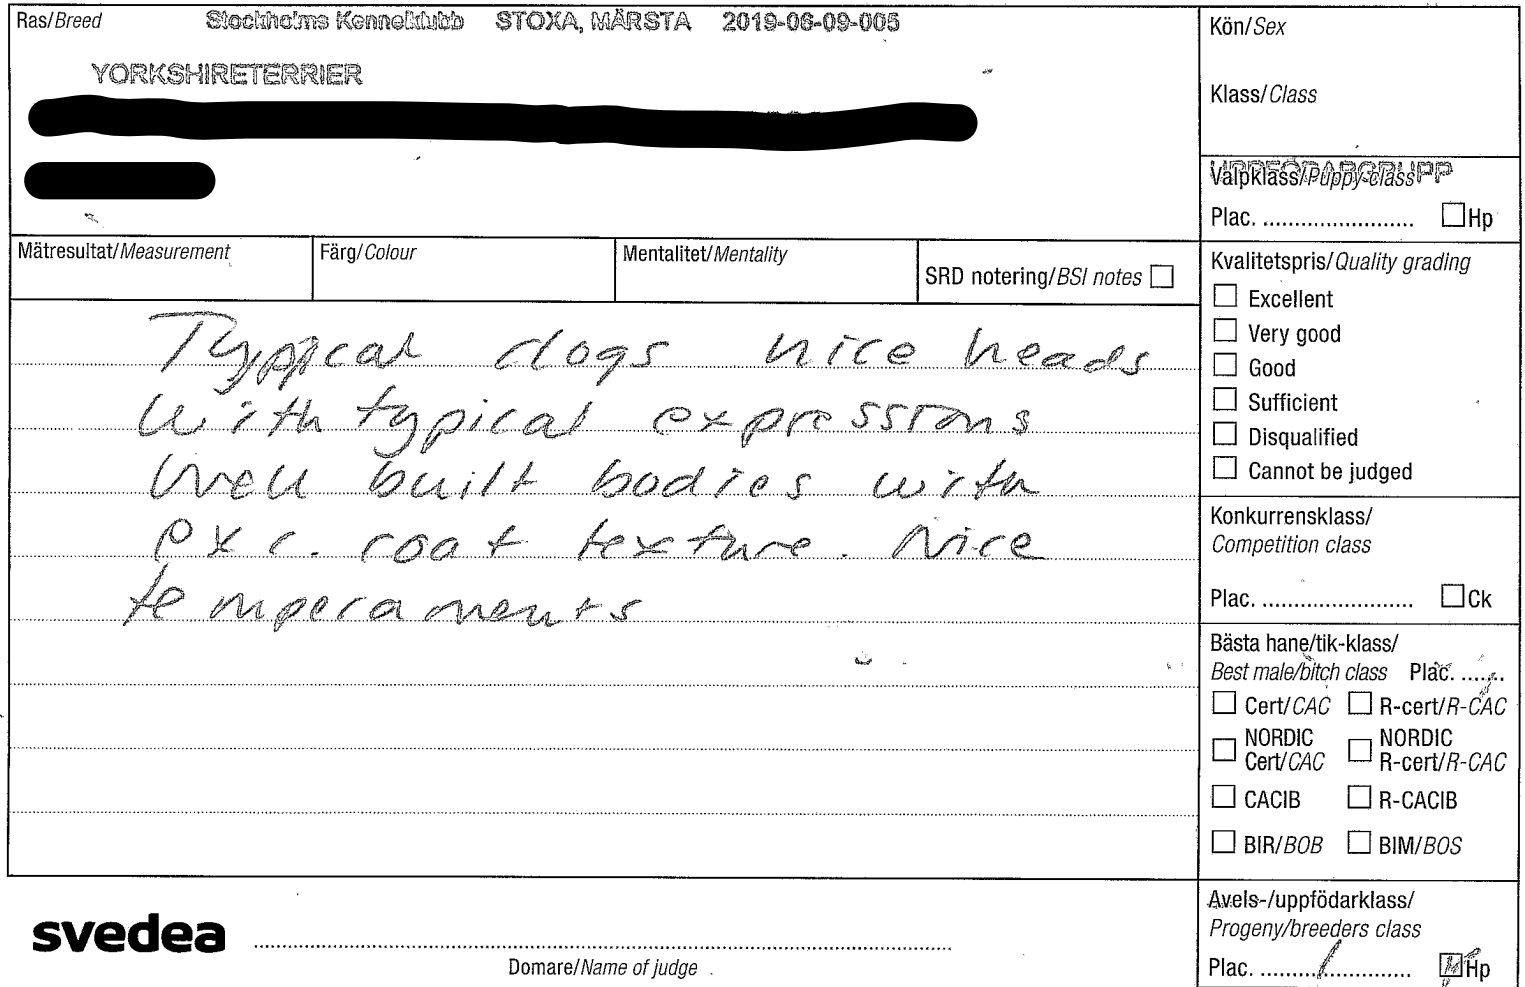 Ras/Breed Stockholms Kennelklubb STOXA, MÄRSTA 2019-06-09-005
YORKSHIRETERRIER
Kön/Sex
Klass/Class
UPPFÖDARGRUPP
Valpklass/Puppy class
Plac. ........................ ☐Hp
Mätresultat/Measurement Färg/Colour Mentalitet/Mentality SRD notering/BSI notes ☐
Typpical dogs nice heads
with typical expressions
Well built bodies with
exc. coat texture. Nice
temperaments
Kvalitetspris/Quality grading
☐ Excellent
☐ Very good
☐ Good
☐ Sufficient
☐ Disqualified
☐ Cannot be judged
Konkurrensklass/
Competition class
Plac. ........................ ☐Ck
Bästa hane/tik-klass/
Best male/bitch class Plac. .......
☐ Cert/CAC ☐ R-cert/R-CAC
☐ NORDIC Cert/CAC ☐ NORDIC R-cert/R-CAC
☐ CACIB ☐ R-CACIB
☐ BIR/BOB ☐ BIM/BOS
Avels-/uppfödarklass/
Progeny/breeders class
Plac. .........1............. ☒Hp
svedea
Domare/Name of judge